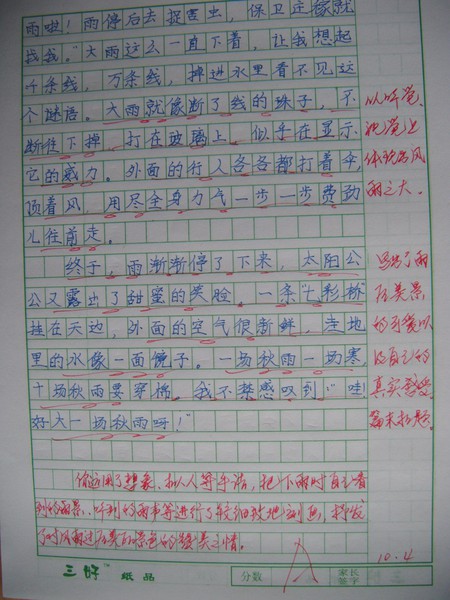 雨啦！雨停后去捉害虫，保卫庄稼就
找我。"大雨这么一直下着，让我想起
千条线，万条线，掉进水里看不见这
个谜语。大雨就像断了线的珠子，不
断往下掉，打在玻璃上，似乎在显示
它的威力。外面的行人各各都打着伞，
顶着风，用尽全身力气一步一步费劲
儿往前走。
终于，雨渐渐停了下来，太阳公
公又露出了甜蜜的笑脸。一条"七彩桥"
挂在天边，外面的空气很新鲜，走地
里的水像一面镜子。一场秋雨一场寒，
十场秋雨要穿棉。我不禁感叹到："哇！
好大一场秋雨呀！"
从听觉、
视觉上
体现出风
雨之大。
写出了雨
后美景
的可爱以
及自己的
真实感受，
篇末扣题。
你运用了想象、拟人等手法，把下雨时自己看
到的雨景、听到的雨声等进行了较细致地刻画，抒发
了对雨过后美的景色的赞美之情。
A
10.4
三好 纸品
分数
家长
签字